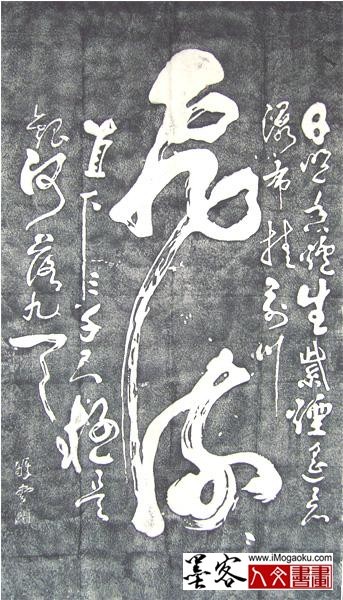 日照香爐生紫煙遙看
瀑布挂前川
飛流
直下三千尺疑是
銀河落九天
墨客
www.iMogaoku.com
人文書畫